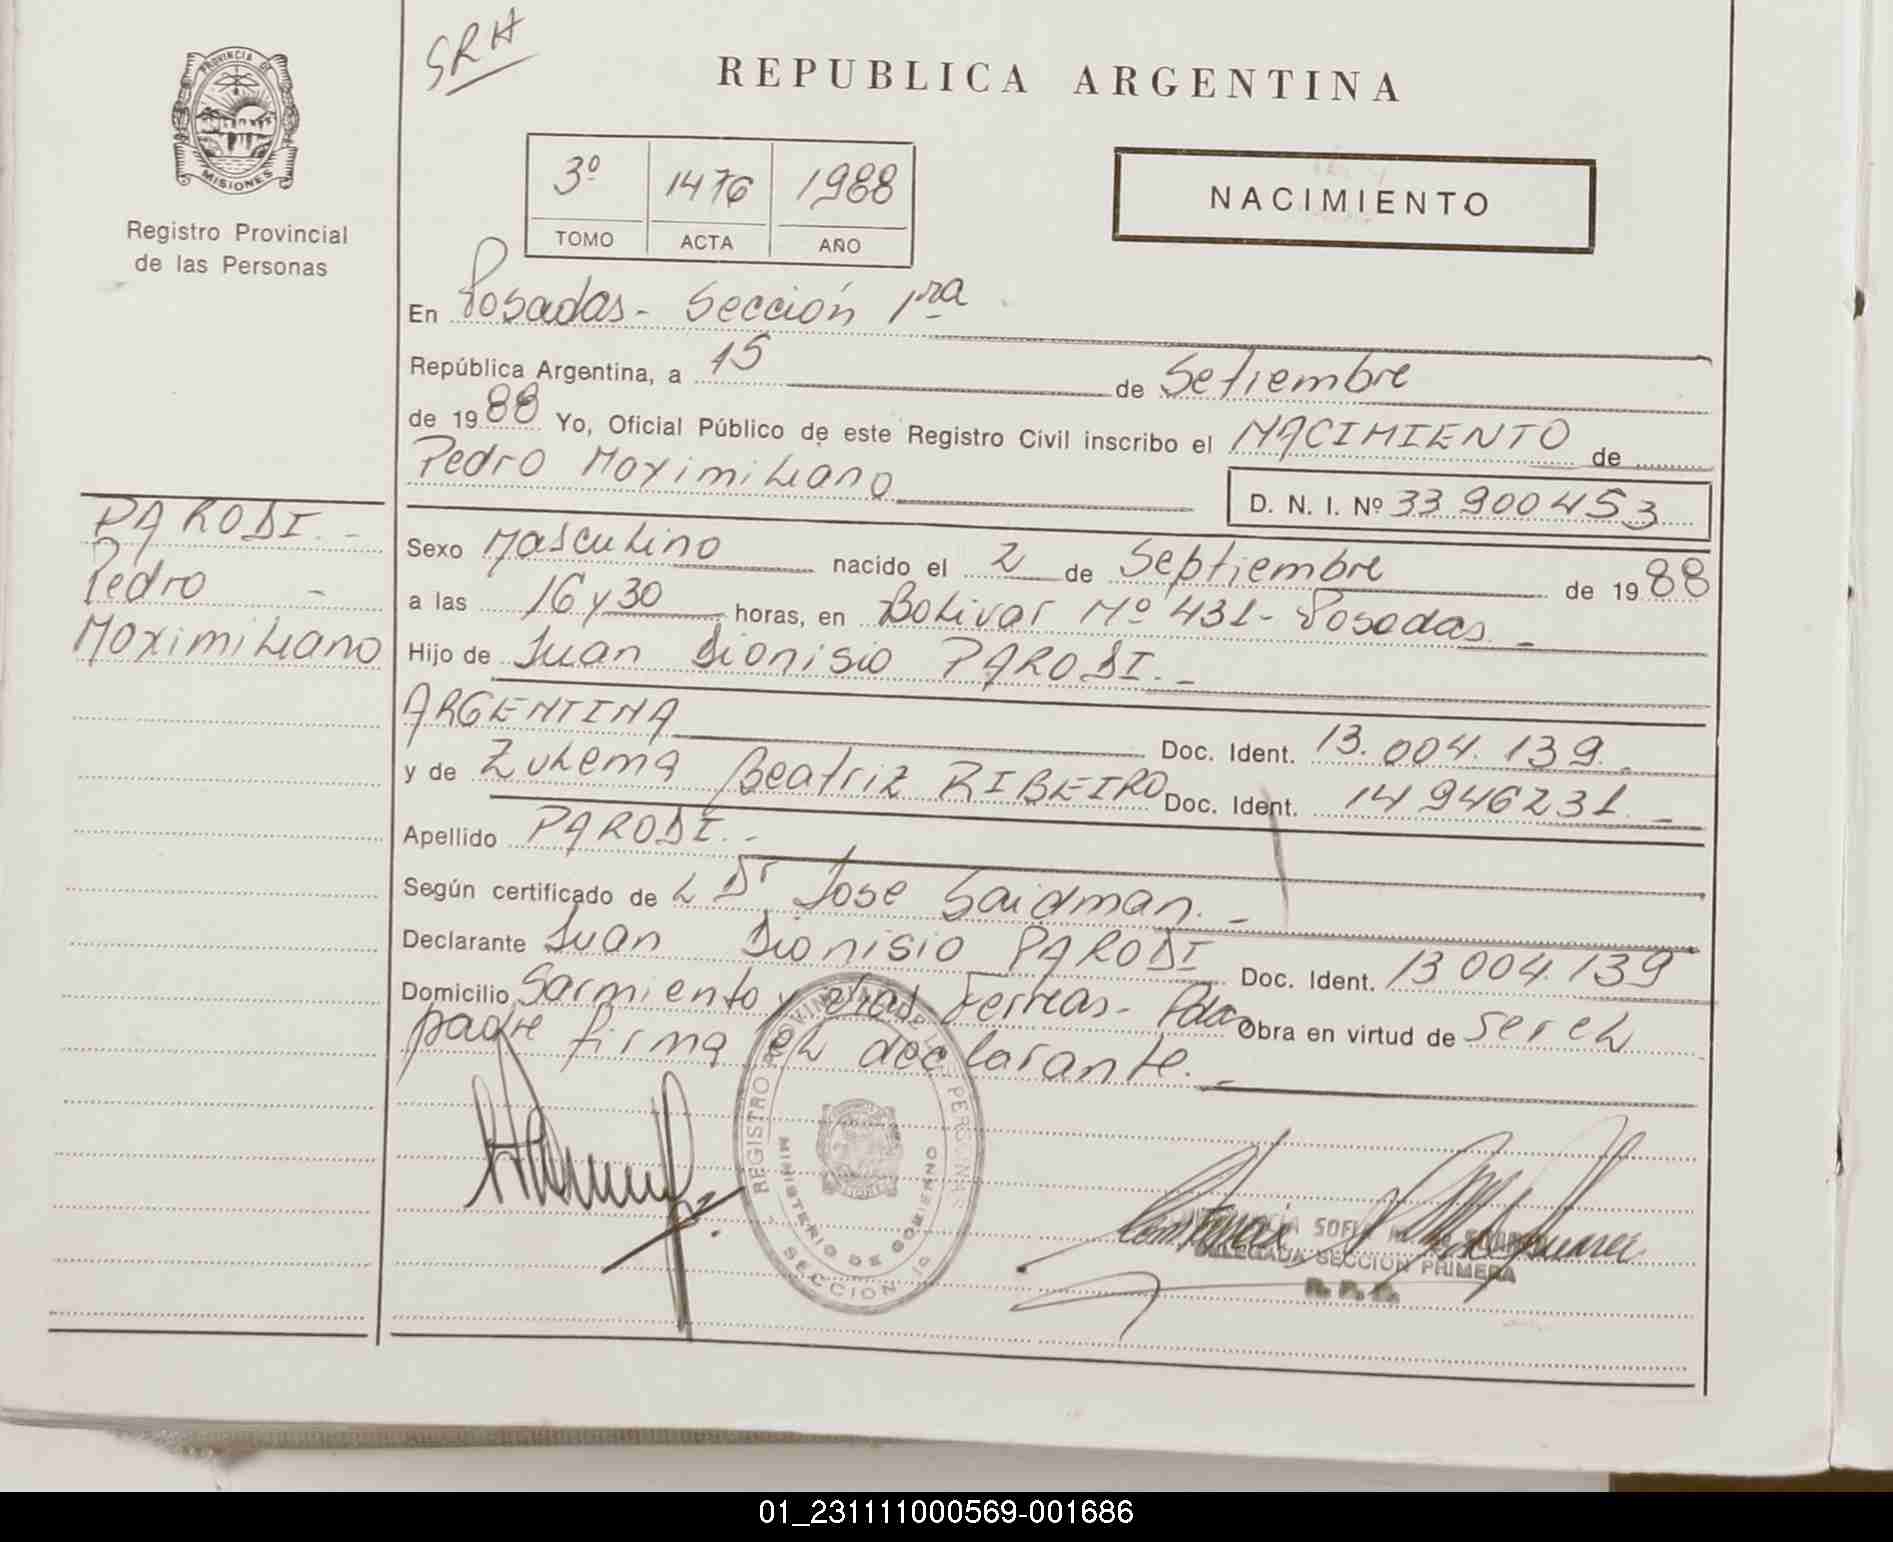 SRH
REPUBLICA ARGENTINA
PROVINCIA DE
MISIONES
Registro Provincial
de las Personas
3º 1476 1988
TOMO ACTA AÑO
NACIMIENTO
En Posadas - Sección 1ra
República Argentina, a 15 de Setiembre
de 1988 Yo, Oficial Público de este Registro Civil inscribo el NACIMIENTO de
Pedro Maximiliano
D. N. I. Nº 33 900 453
PARODI. -
Pedro -
Maximiliano
Sexo Masculino nacido el 2 de Septiembre de 1988
a las 16 y 30 horas, en Bolivar Nº 431 - Posadas. -
Hijo de Juan Dionisio PARODI. -
ARGENTINA Doc. Ident. 13.004.139. -
y de Zulema Beatriz RIBEIRO Doc. Ident. 14 946231. -
Apellido PARODI. -
Según certificado de L Dr Jose Saidman. -
Declarante Juan Dionisio PARODI Doc. Ident. 13 004.139
Domicilio Sarmiento y Ferreas - Pdas Obra en virtud de ser el
padre firma el declarante. -
REGISTRO PROVINCIAL DE LAS PERSONAS
MINISTERIO DE GOBIERNO
SECCION 1a
SOFIA
DELEGADA SECCION PRIMERA
R. P. P.
01_231111000569-001686